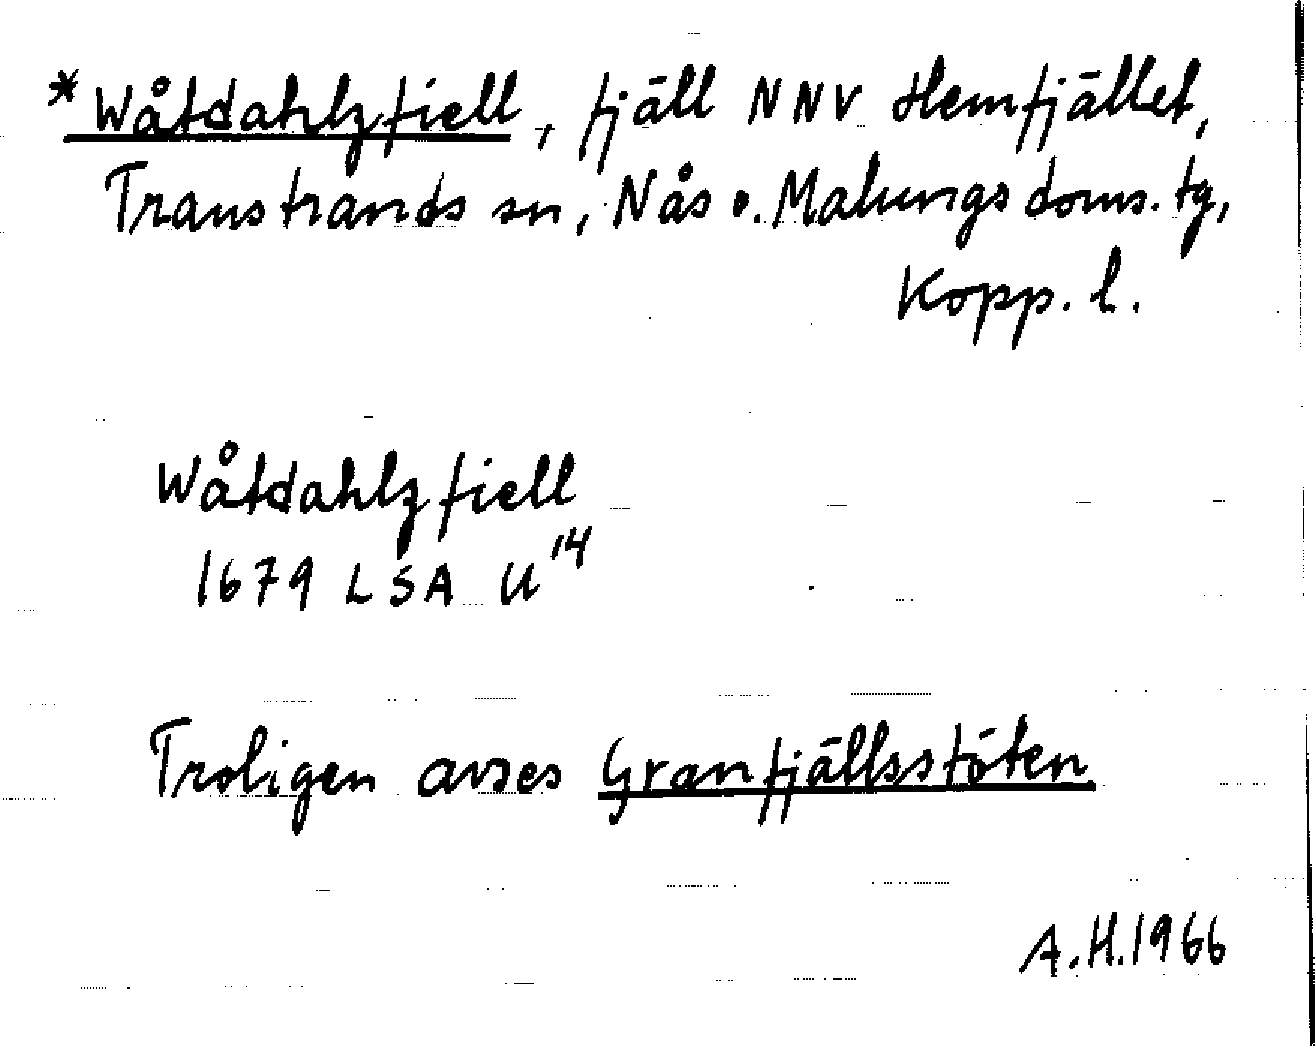 *Wåtdahlzfiell, fjäll NNV Hemfjället,
Transtrands sn, Nås o. Malungs doms. tg,
Kopp. l.
Wåtdahlzfiell
1679 LSA U14
Troligen avses Granfjällsstöten
A.H. 1966